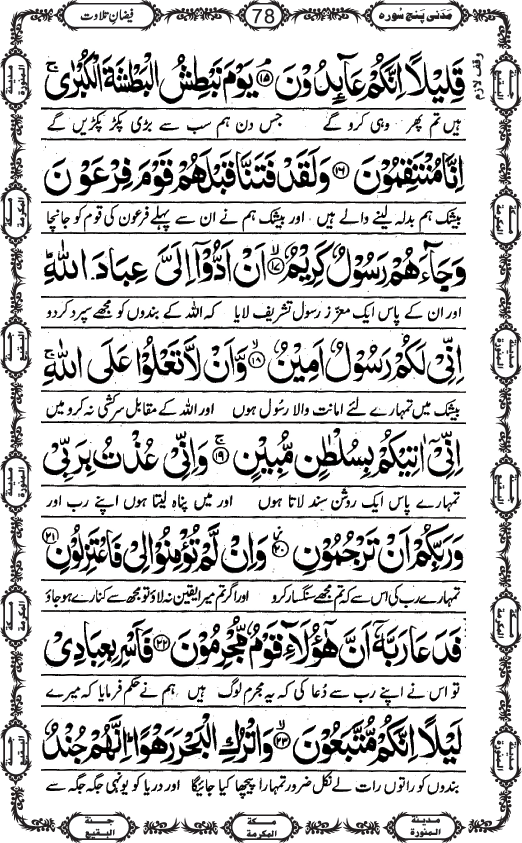 مَدَنی پنج سُورہ
78
فیضانِ تلاوت
وقف لازم
قَلِیْلًا اِنَّكُمْ عَآىِٕدُوْنَۘ ۱۵ یَوْمَ نَبْطِشُ الْبَطْشَةَ الْكُبْرٰىۚ
ہیں تم پھر وہی کرو گے جس دن ہم سب سے بڑی پکڑ پکڑیں گے
اِنَّا مُنْتَقِمُوْنَ ۱۶ وَ لَقَدْ فَتَنَّا قَبْلَهُمْ قَوْمَ فِرْعَوْنَ
بیشک ہم بدلہ لینے والے ہیں اور بیشک ہم نے ان سے پہلے فرعون کی قوم کو جانچا
وَ جَآءَهُمْ رَسُوْلٌ كَرِیْمٌۙ ۱۷ اَنْ اَدُّوْۤا اِلَیَّ عِبَادَ اللّٰهِؕ
اور ان کے پاس ایک معزز رسول تشریف لایا کہ اللہ کے بندوں کو مجھے سپرد کردو
اِنِّیْ لَكُمْ رَسُوْلٌ اَمِیْنٌۙ ۱۸ وَّ اَنْ لَّا تَعْلُوْا عَلَى اللّٰهِۚ
بیشک میں تمہارے لئے امانت والا رسُول ہوں اور اللہ کے مقابل سرکشی نہ کرو میں
اِنِّیْۤ اٰتِیْكُمْ بِسُلْطٰنٍ مُّبِیْنٍۚ ۱۹ وَ اِنِّیْ عُذْتُ بِرَبِّیْ
تمہارے پاس ایک روشن سند لاتا ہوں اور میں پناہ لیتا ہوں اپنے رب اور
وَ رَبِّكُمْ اَنْ تَرْجُمُوْنِ٘ ۲۰ وَ اِنْ لَّمْ تُؤْمِنُوْا لِیْ فَاعْتَزِلُوْنِ ۲۱
تمہارے رب کی اس سے کہ تم مجھے سنگسار کرو اور اگر تم میرا یقین نہ لاؤ تو مجھ سے کنارے ہوجاؤ
فَدَعَا رَبَّهٗۤ اَنَّ هٰۤؤُلَآءِ قَوْمٌ مُّجْرِمُوْنَ ۲۲ فَاَسْرِ بِعِبَادِیْ
تو اس نے اپنے رب سے دُعا کی کہ یہ مجرم لوگ ہیں ہم نے حکم فرمایا کہ میرے
لَیْلًا اِنَّكُمْ مُّتَّبَعُوْنَۙ ۲۳ وَ اتْرُكِ الْبَحْرَ رَهْوًاؕ اِنَّهُمْ جُنْدٌ
بندوں کو راتوں رات لے نکل ضرور تمہارا پیچھا کیا جائیگا اور دریا کو یونہی جگہ جگہ سے
مدینة المنورة
مکة المکرمة
جنة البقیع